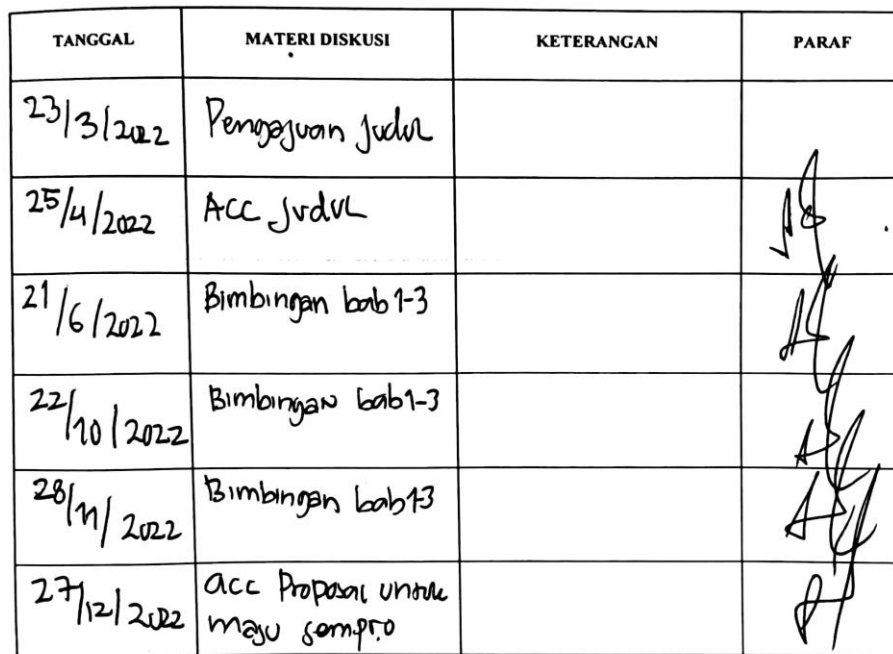 TANGGAL MATERI DISKUSI KETERANGAN PARAF
23/3/2022 Pengajuan Judul
25/4/2022 ACC Judul
21/6/2022 Bimbingan bab 1-3
22/10/2022 Bimbingan bab 1-3
28/11/2022 Bimbingan bab 1-3
27/12/2022 acc Proposal untuk
maju sempro